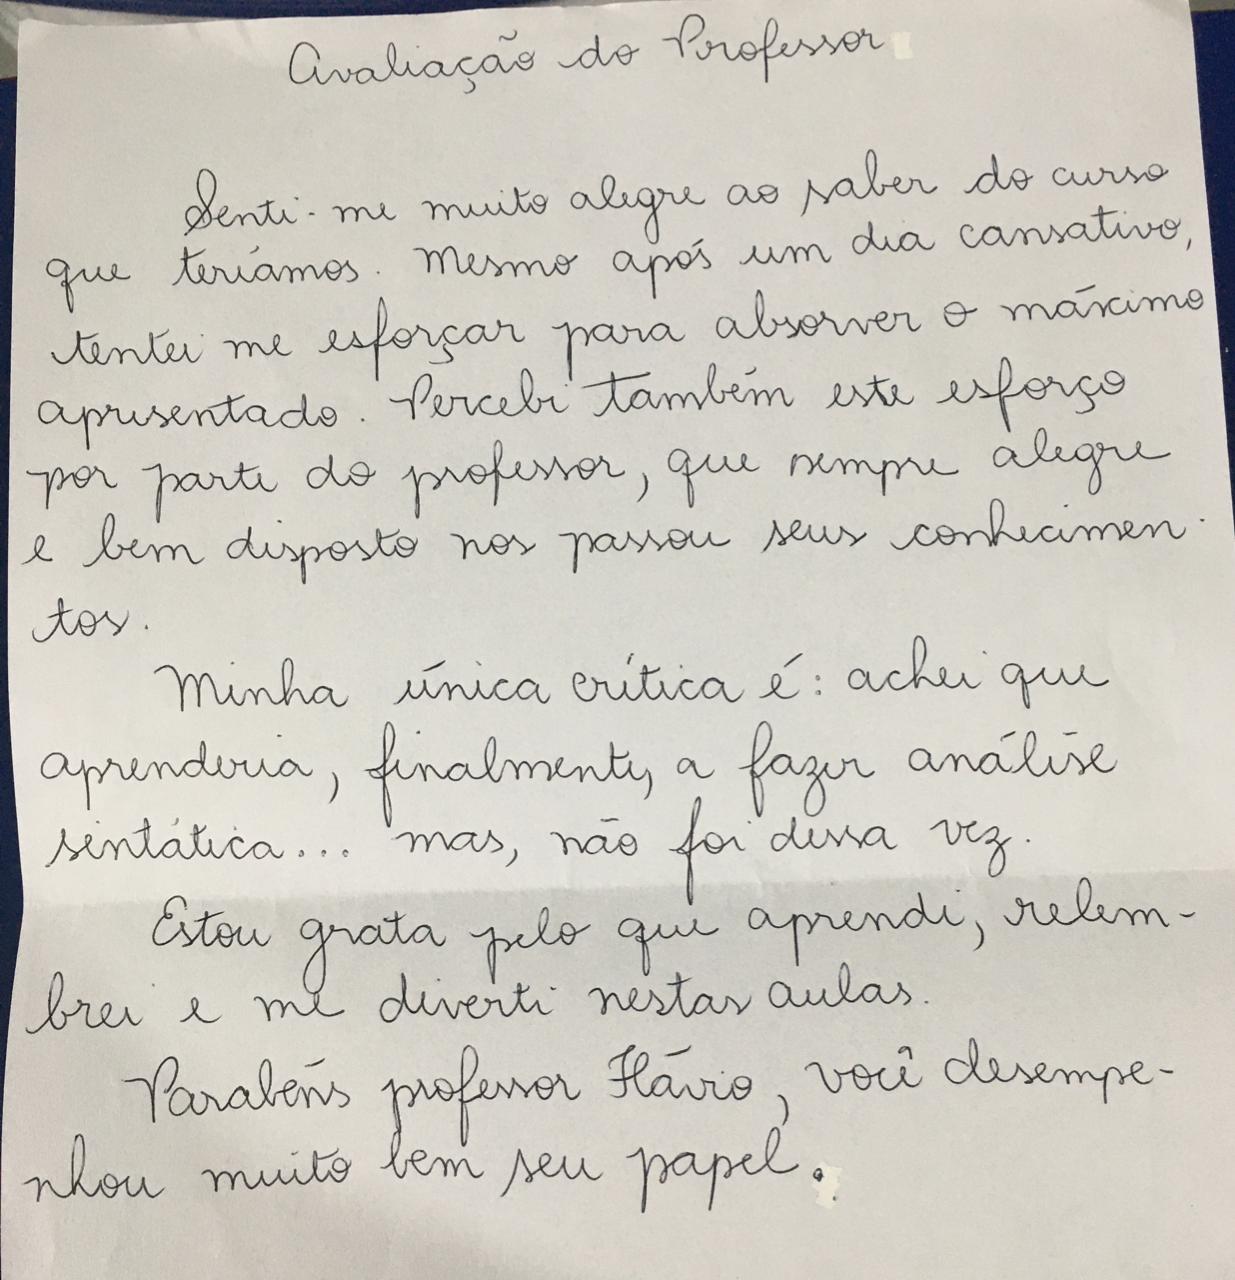 Avaliação do Professor
Senti-me muito alegre ao saber do curso
que teríamos. Mesmo após um dia cansativo,
tentei me esforçar para absorver o máximo
apresentado. Percebi também este esforço
por parte do professor, que sempre alegre
e bem disposto nos passou seus conhecimen-
tos.
Minha única crítica é: achei que
aprenderia, finalmente, a fazer análise
sintática... mas, não foi dessa vez.
Estou grata pelo que aprendi, relem-
brei e me diverti nestas aulas.
Parabéns professor Flávio, você desempe-
nhou muito bem seu papel.